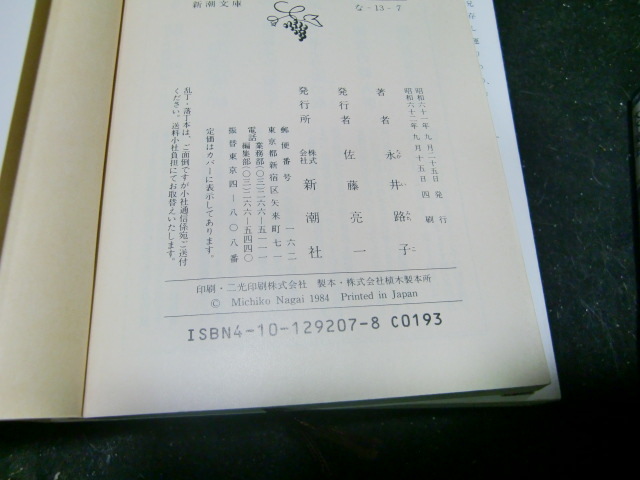 新潮文庫
な-13-7
昭和六十一年九月二十五日発行
昭和六十二年九月十五日四刷
著者 永井路子
発行者 佐藤亮一
発行所 株式会社 新潮社
郵便番号 一六二
東京都新宿区矢来町七一
電話 業務部〇三-二六六-五一一一
編集部〇三-二六六-五四四〇
振替東京四-八〇八番
定価はカバーに表示してあります。
乱丁・落丁本は、ご面倒ですが小社通信係宛ご送付
ください。送料小社負担にてお取替えいたします。
印刷・二光印刷株式会社 製本・株式会社植木製本所
© Michiko Nagai 1984 Printed in Japan
ISBN4-10-129207-8 C0193